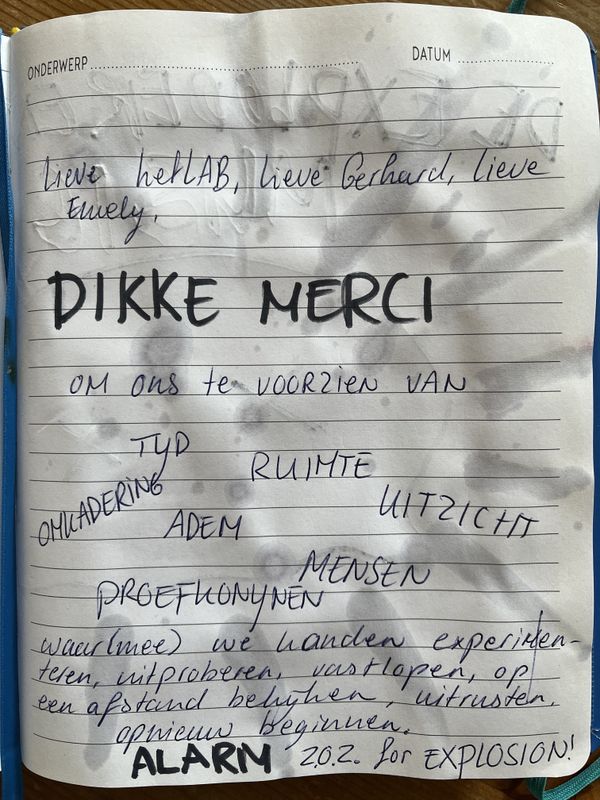 ONDERWERP
DATUM
Lieve hetLAB, Lieve Gerhard, Lieve
Emely,
DIKKE MERCI
OM ONS te VOORZIEN VAN
TYD
RUIMTE
OMKADERING
ADEM
UITZICHT
MENSEN
PROEFKONYNEN
waar(mee) we kanden experimen-
teren, uitproberen, vastlopen, op
een afstand bekyken, uitrusten,
opnieuw beginnen.
ALARM 202 for EXPLOSION!